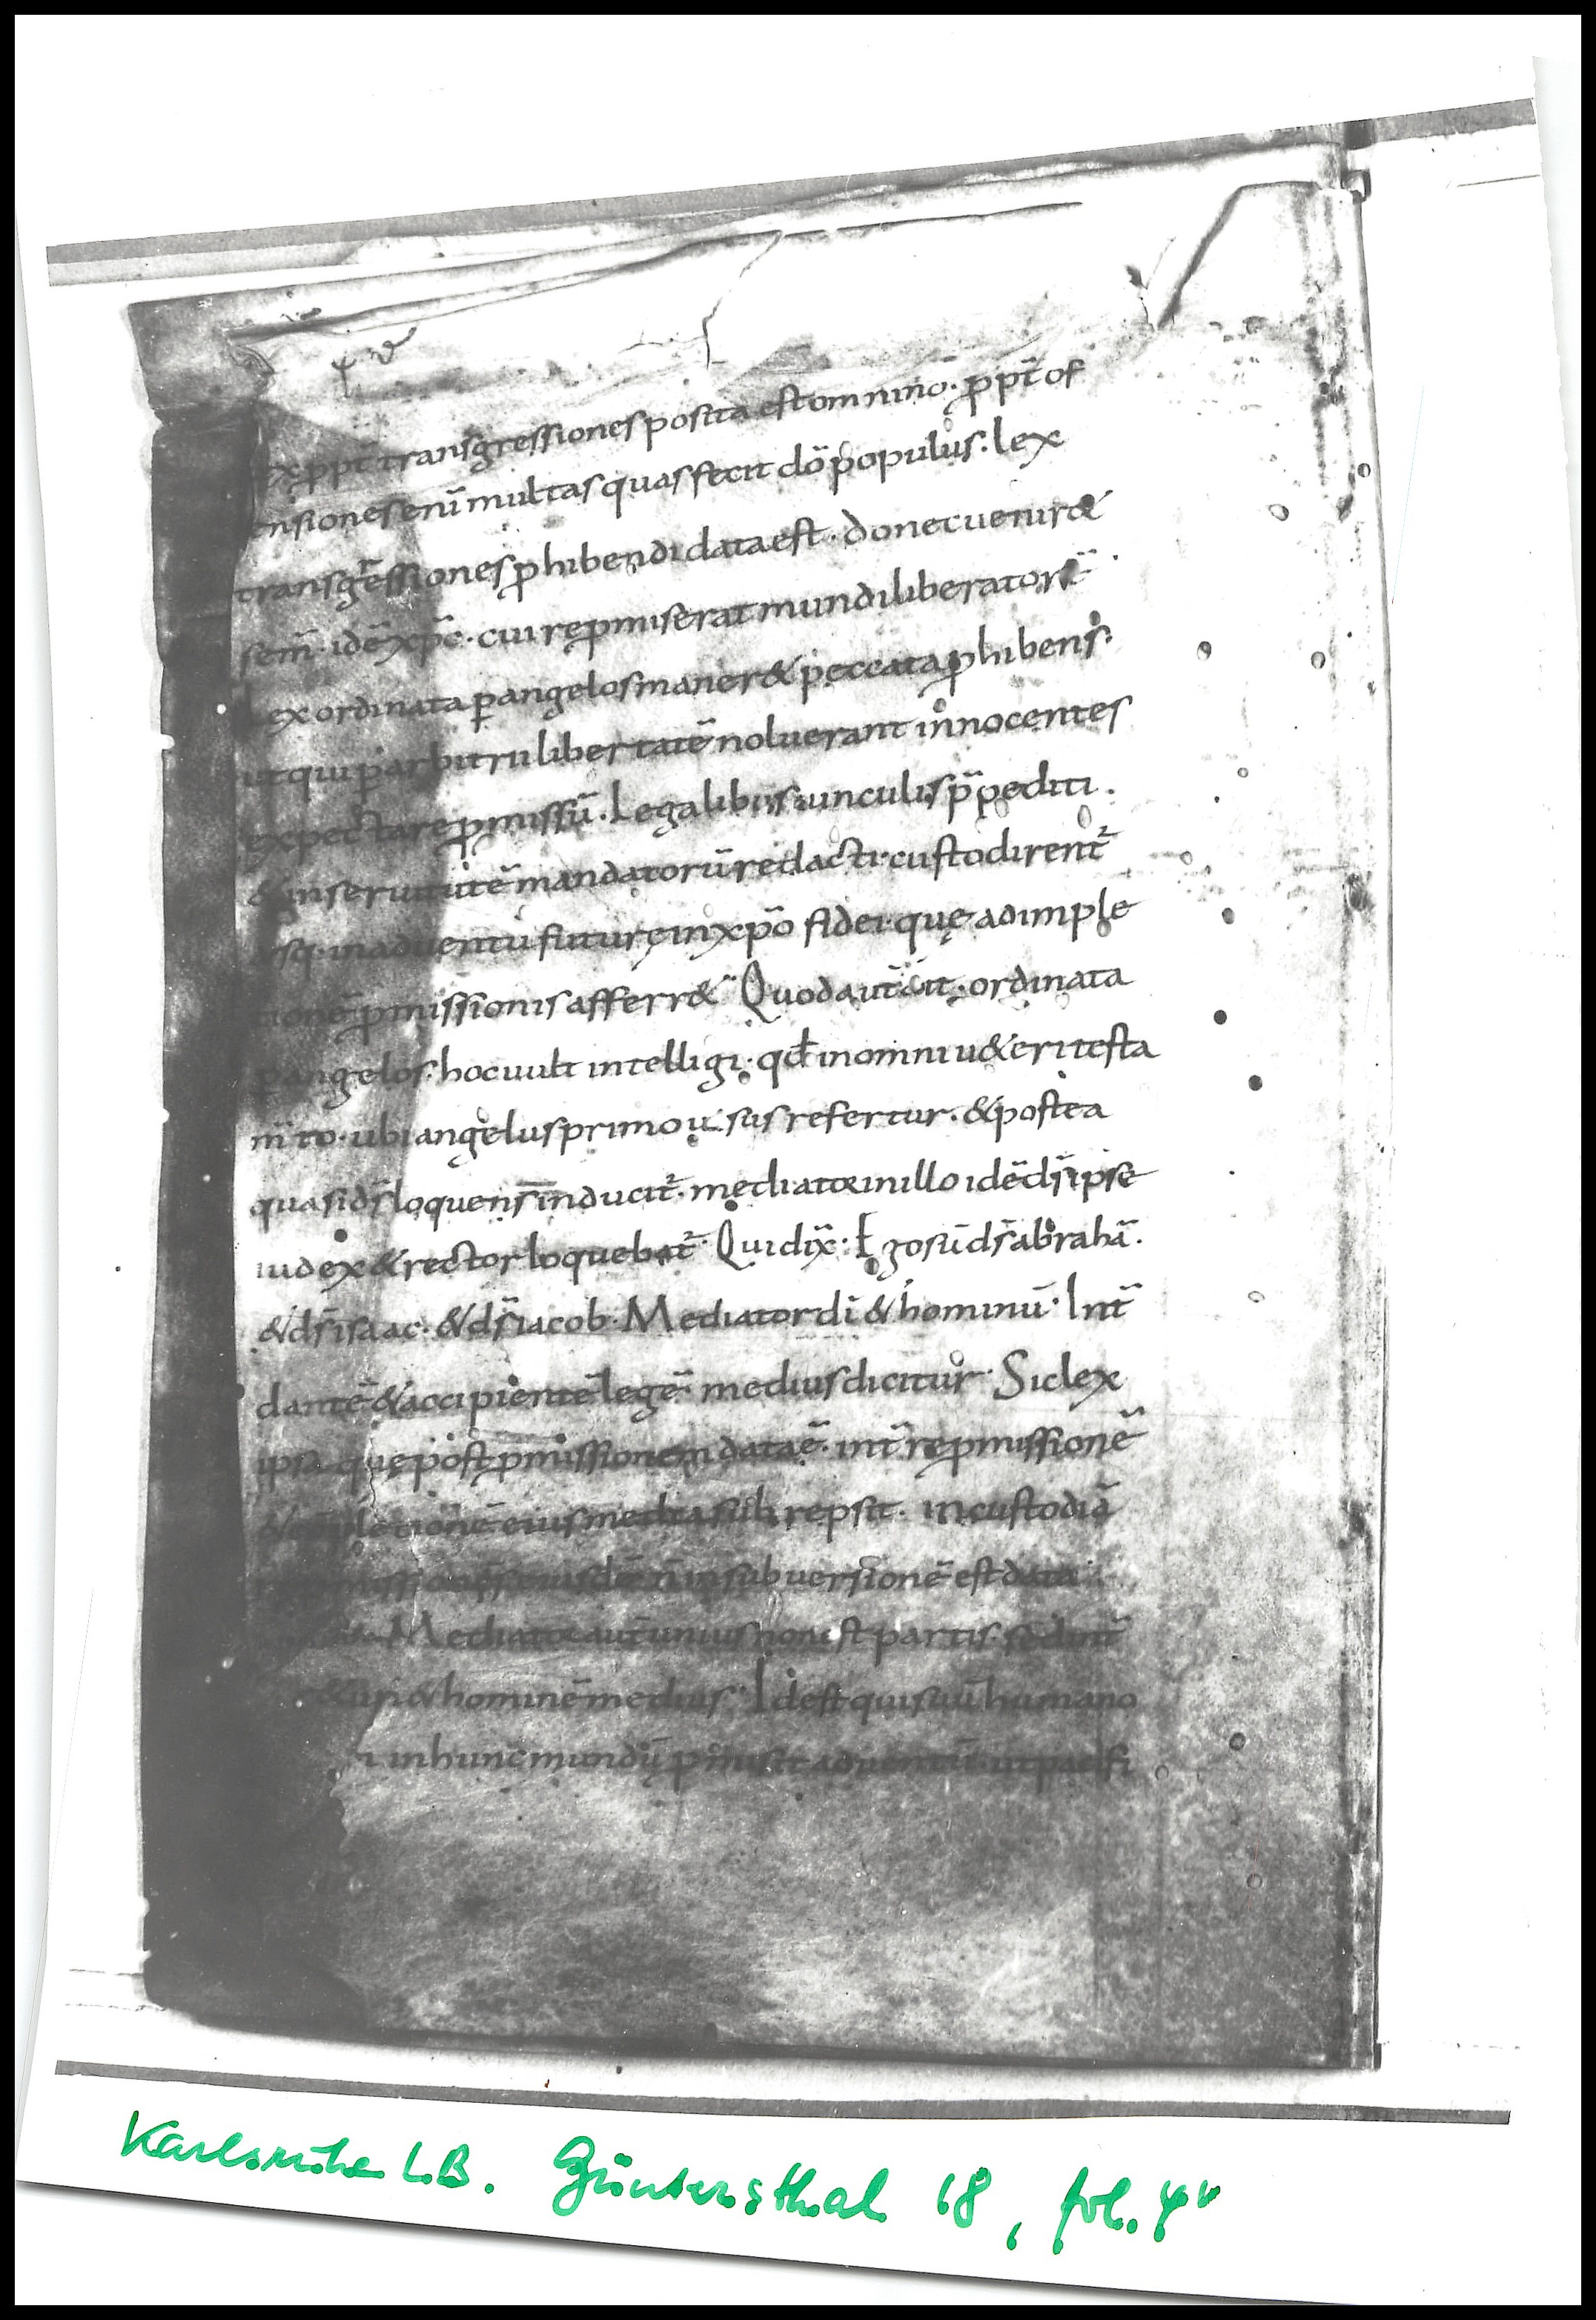 4 v
ex ꝓpt̄ transgressiones posita est omnino· ꝓpt̄ of
ensiones enī multas quas fecit dō populus· lex
transgressiones ꝓhibendi data est· donec uenir&
sem̄· idē xp̄c· cui reꝓmiserat mundi liberatorē·
Lex ordinata ꝑ angelos maner& peccata ꝓhibens·
ut qui ꝑ arbitrii libertatē noluerant innocentes
expectare ꝓmissū· Legalibus uinculis p̄pediti·
& in seruitutē mandatorū redacti· custodirent᷑
usq· in aduentū futurę in xp̄o fidei· quę adimple
tionē ꝓmissionis afferr& Quod aut̄ ait· ordinata
ꝑ angelos· hoc uult intelligi· qd̄ in omni u&eri testa
m̄to· ubi angelus primo uisus refertur· & postea
quasi ds̄ loquens inducit᷑· mediator in illo idē ds̄ ipse
iudex & rector loquebat᷑· Qui dix̄· Ego sū ds̄ abrahā·
& ds̄ isaac· & ds̄ iacob· Mediator dī & hominū· Int̄
dantē & accipientē legē· medius dicitur· Sic lex
ipsa quę post ꝓmissionem data ē· int̄ reꝓmissionē
eius media subrepsit· in custodiā
eiusdē n̄ in subuersionē est data
Mediator aut̄ unius non est partis· sed int̄
& hominē medius· Id est qui suū humano
in hunc mundū ꝓmisit aduentū· ut pacifi
Karlsruhe L.B. Güntersthal 18, fol. 4v